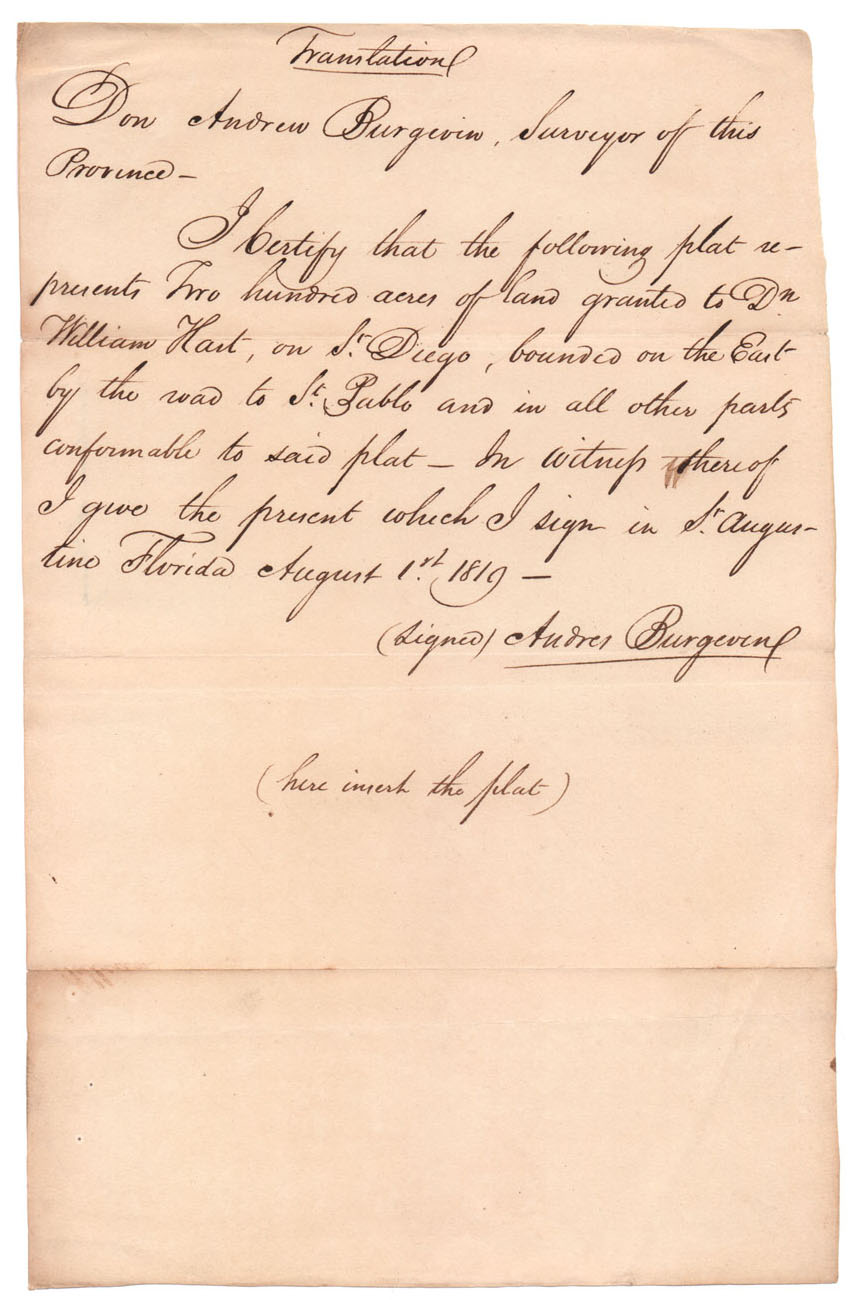 Translation
Don Andrew Burgevin, Surveyor of this
Province –
I Certify that the following plat re-
presents Two hundred acres of land granted to Dn
William Hart, on St. Diego, bounded on the East
by the road to St. Pablo and in all other parts
conformable to said plat – In witness thereof
I give the present which I sign in St. Augus-
tine Florida August 1.st 1819 –
(signed) Andres Burgevin
(here insert the plat)